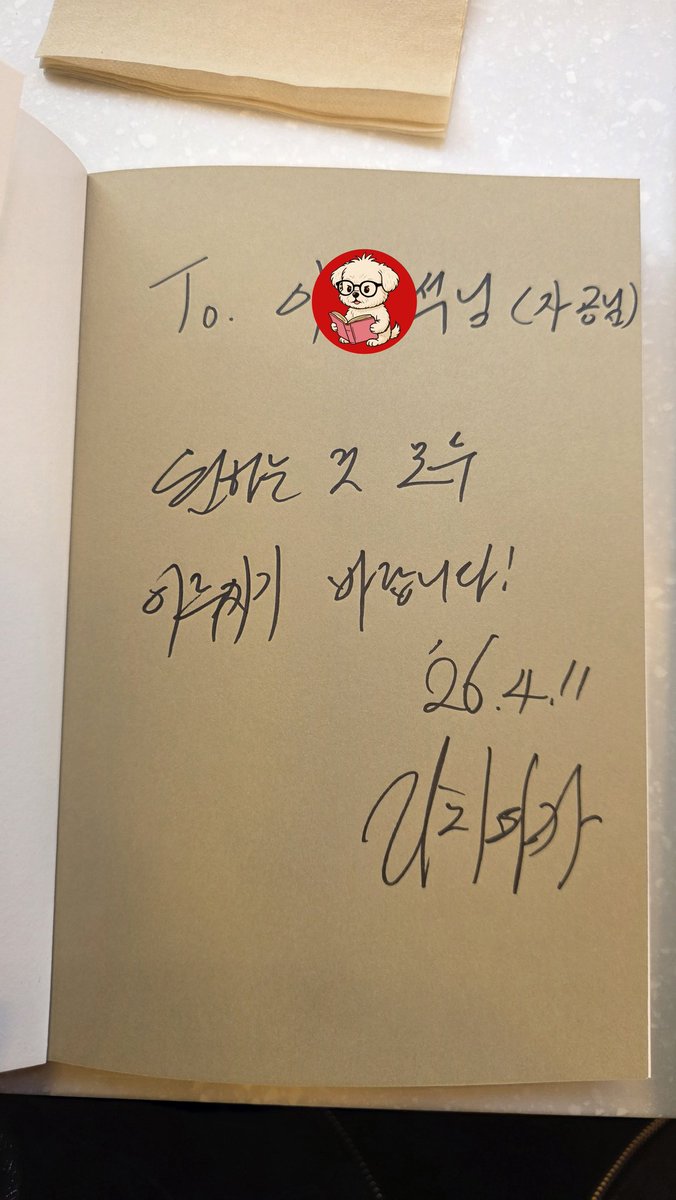 To. 이 석님 (자공님)
원하는 것 모두
이루시기 바랍니다!
'26.4.11